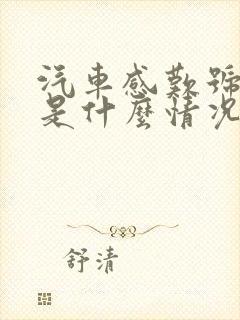 汽車感歎號
是什麼情況
舒清